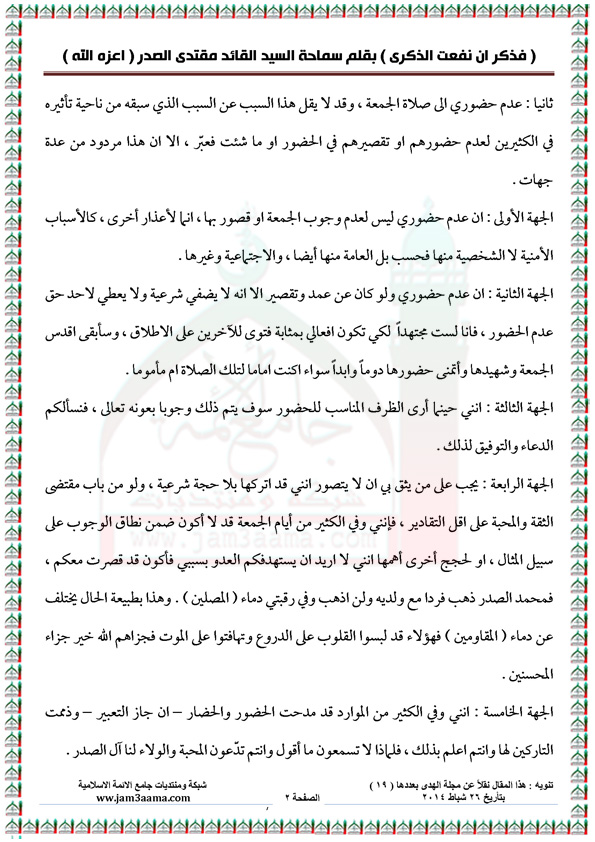 ( فذكر ان نفعت الذكرى ) بقلم سماحة السيد القائد مقتدى الصدر ( اعزه الله )
ثانيا : عدم حضوري الى صلاة الجمعة ، وقد لا يقل هذا السبب عن السبب الذي سبقه من ناحية تأثيره
في الكثيرين لعدم حضورهم او تقصيرهم في الحضور او ما شئت فعبّر ، الا ان هذا مردود من عدة
جهات .
الجهة الأولى : ان عدم حضوري ليس لعدم وجوب الجمعة او قصور بها ، انما لأعذار أخرى ، كالأسباب
الأمنية لا الشخصية منها فحسب بل العامة منها أيضا ، والاجتماعية وغيرها .
الجهة الثانية : ان عدم حضوري ولو كان عن عمد وتقصير الا انه لا يضفي شرعية ولا يعطي لاحد حق
عدم الحضور ، فانا لست مجتهداً لكي تكون افعالي بمثابة فتوى للآخرين على الاطلاق ، وسأبقى اقدس
الجمعة وشهيدها وأتمنى حضورها دوماً وابداً سواء اكنت اماما لتلك الصلاة ام مأموما .
الجهة الثالثة : انني حينما أرى الظرف المناسب للحضور سوف يتم ذلك وجوبا بعونه تعالى ، فنسألكم
الدعاء والتوفيق لذلك .
الجهة الرابعة : يجب على من يثق بي ان لا يتصور انني قد اتركها بلا حجة شرعية ، ولو من باب مقتضى
الثقة والمحبة على اقل التقادير ، فإنني وفي الكثير من أيام الجمعة قد لا أكون ضمن نطاق الوجوب على
سبيل المثال ، او لحجج أخرى أهمها انني لا اريد ان يستهدفكم العدو بسببي فأكون قد قصرت معكم ،
فمحمد الصدر ذهب فردا مع ولديه ولن اذهب وفي رقبتي دماء ( المصلين ) . وهذا بطبيعة الحال يختلف
عن دماء ( المقاومين ) فهؤلاء قد لبسوا القلوب على الدروع وتهافتوا على الموت فجزاهم الله خير جزاء
المحسنين .
الجهة الخامسة : انني وفي الكثير من الموارد قد مدحت الحضور والحضار – ان جاز التعبير – وذممت
التاركين لها وانتم اعلم بذلك ، فلماذا لا تسمعون ما أقول وانتم تدّعون المحبة والولاء لنا آل الصدر .
تنويه : هذا المقال نقلاً عن مجلة الهدى بعددها ( ١٩ )
بتأريخ ٢٦ شباط ٢٠١٤
الصفحة ٢
شبكة ومنتديات جامع الائمة الاسلامية
www.jam3aama.com
جامع الائمة
شبكة ومنتديات
www.jam3aama.com